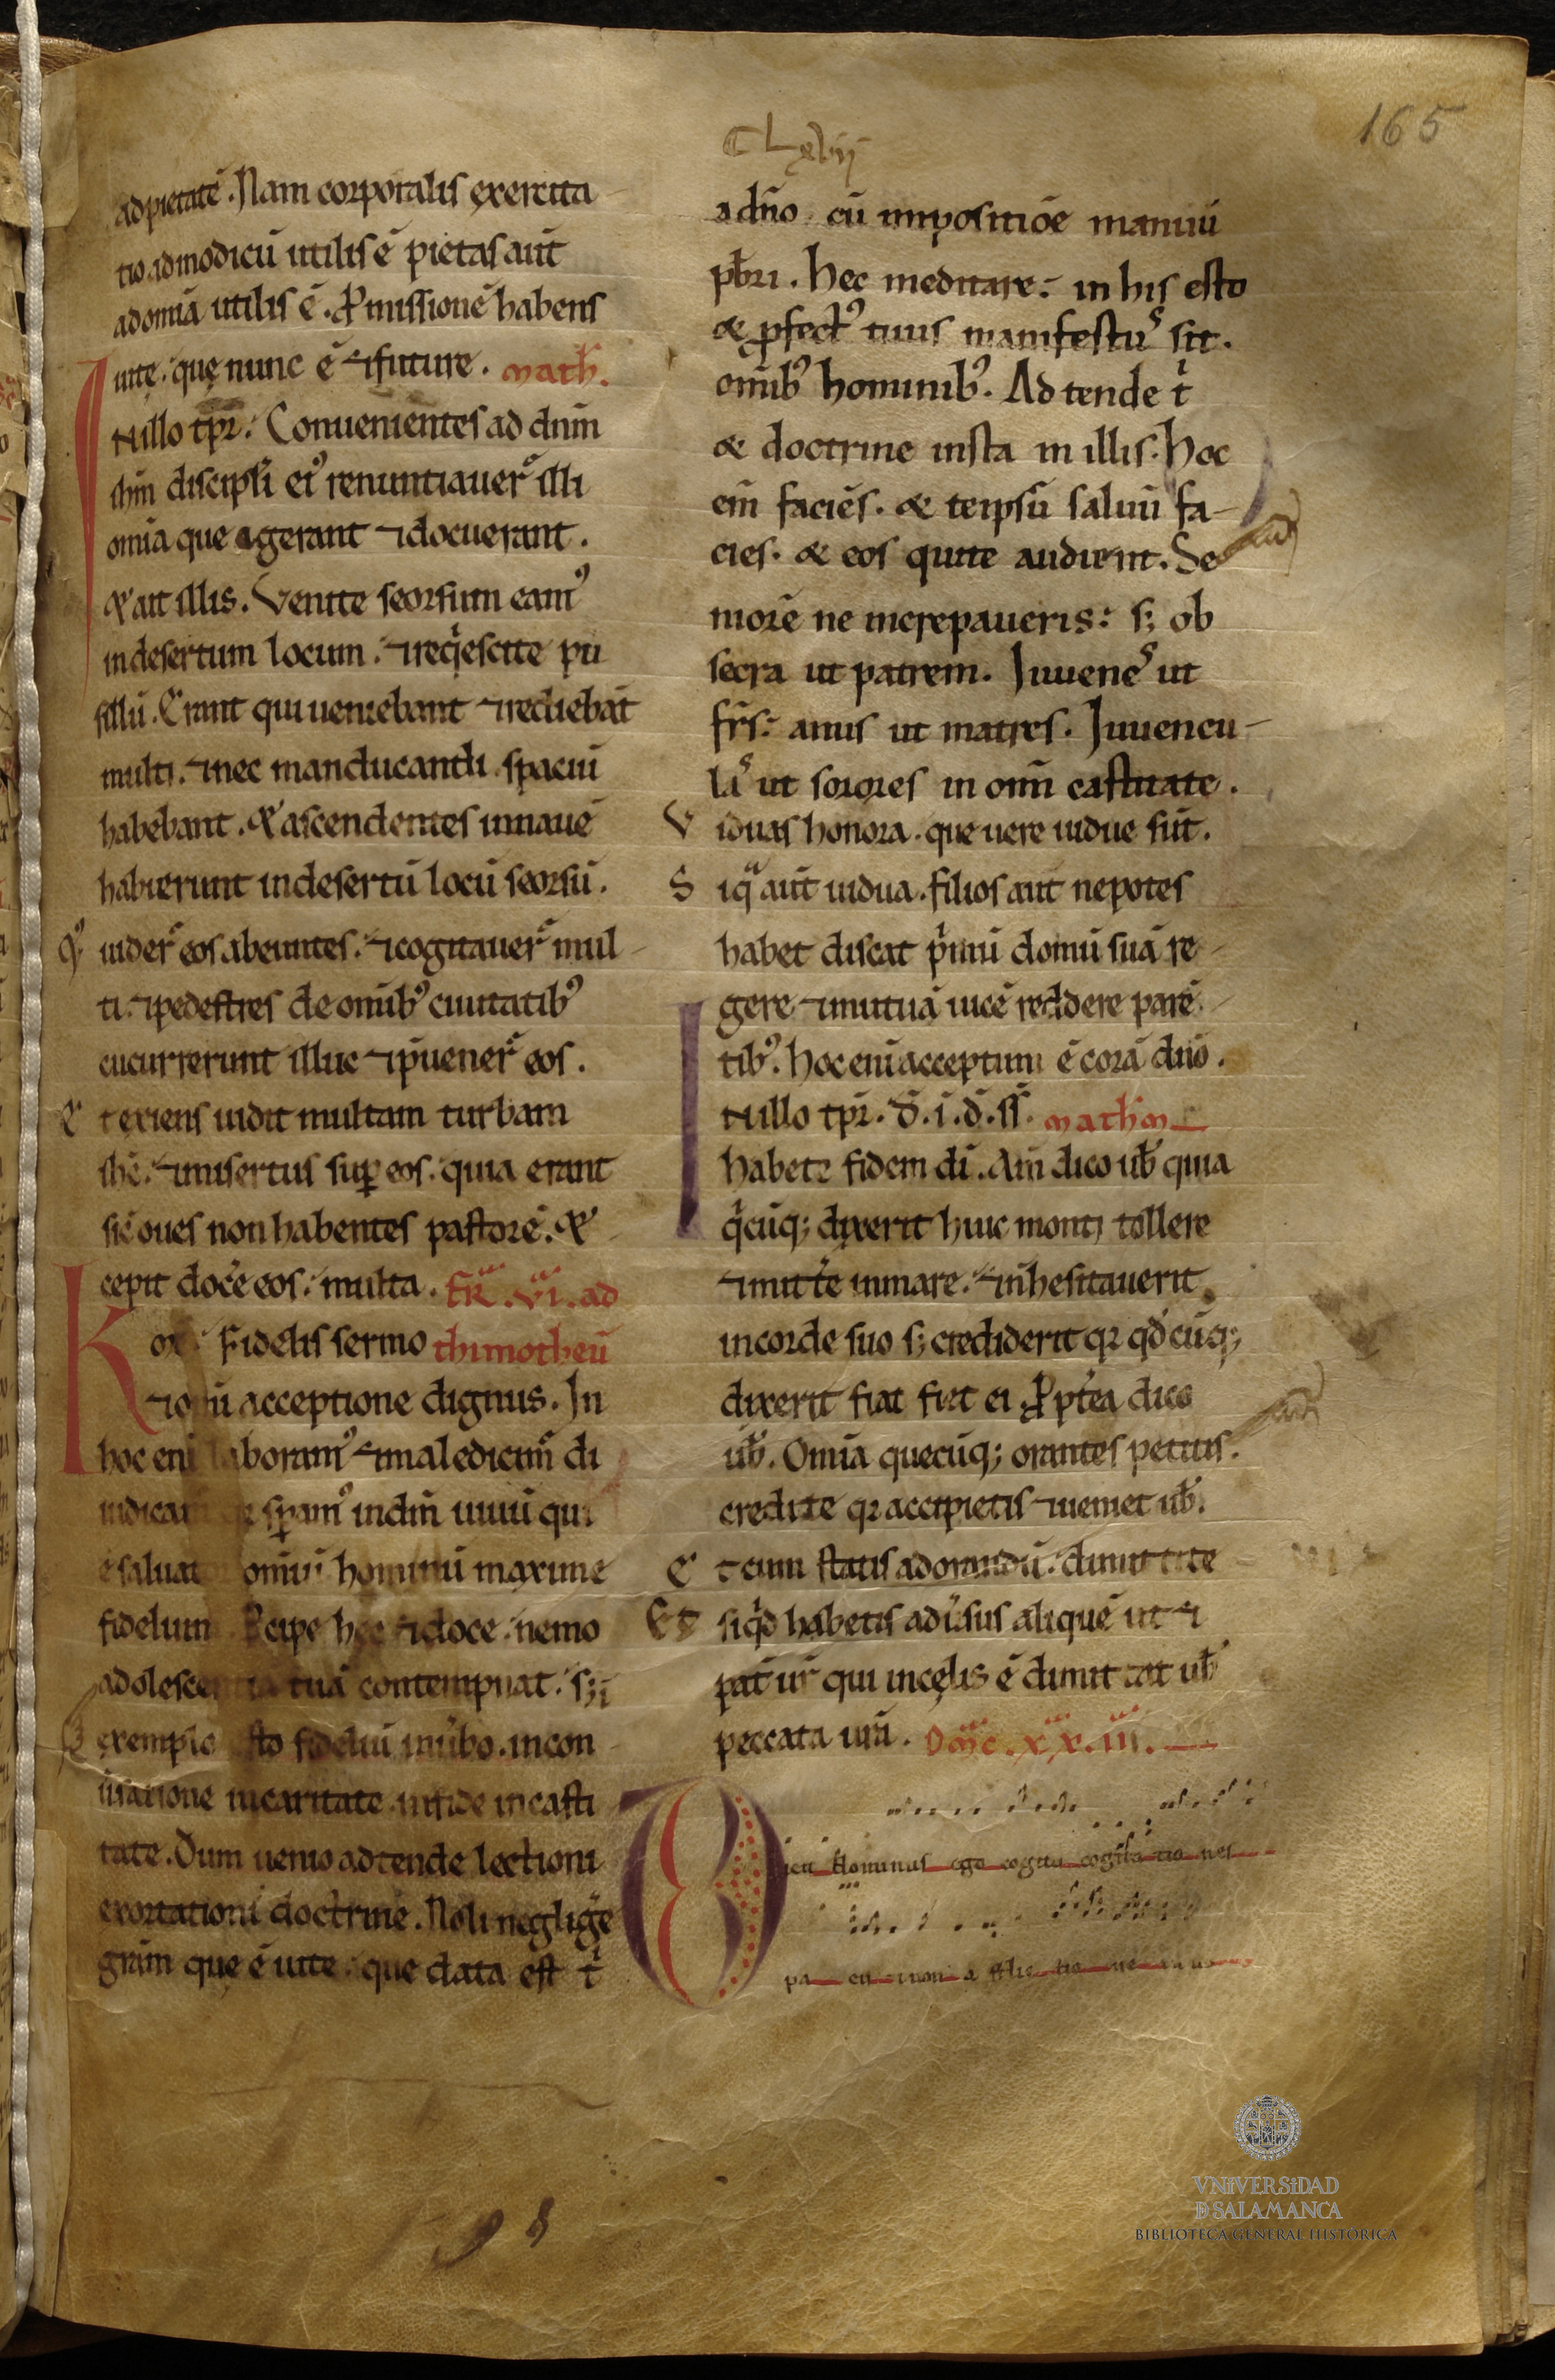 165
ad pietatē. Nam corporalis exercita
tio ad modicū utilis ē pietas aut̄
ad omia utilis ē. Pmissionē habens
uite. que nunc ē ⁊ future. math̄.
IN illo tp̄r. Conuenientes ad dnm̄
ihm̄ discipl̄i eiꝰ renuntiauer̄ illi
omia que egerant ⁊ docuerant.
Et ait illis. Venite seorsum eamꝰ
in desertum locum. ⁊ reqiescite pu
sillū. Erant qui ueniebant ⁊ rediebāt
multi. ⁊ nec manducandi spaciū
habebant. Et ascendentes in nauē
habierunt in desertū locū seorsū.
Et uider̄ eos abeuntes. ⁊ cognauer̄ mul
ti. ⁊ pedestres de omibꝰ ciuitatibꝰ
cucurrerunt illuc ⁊ puener̄ eos.
Et exiens uidit multam turbam
ihc̄. ⁊ misertus sup eos. quia erant
sic̄ oues non habentes pastorē. Et
cepit doc̄e eos. multa. FR̄. VI. ad
K ox. Fidelis sermo thimotheū
⁊ om̄i acceptione dignus. In
hoc eni laboramꝰ ⁊ maledicim̄ di
iudicat spamꝰ in dm̄ uiuū qui
ē saluat omiū hominū maxime
fidelium Pcipe hec ⁊ doce. nemo
adolescentia tuā contempnat. s; ⁊
exemplo esto fideliū in ūbo. in con
ūsatione in caritate in fide in casti
tate. Dum uenio adtende lectioni
exortationi doctrine. Noli neglige
grām que ē in te. que data est t
a dn̄o cū impositiōe manuū
pb̄ri. Hec meditare. in his esto
& pfectꝰ tuus manifestus sit.
omibꝰ hominibꝰ. Ad tende t
& doctrine insta in illis. Hoc
eni faciēs. & teipsū saluū fa-
cies. & eos qui te audient. Se
niorē ne increpaueris: s; ob
secra ut patrem. Iuuenes ut
fr̄s. anus ut matres. Iuuencu-
las ut sorores in omi castitate.
V iduas honora. que uere uidue sūt.
S iqa aut̄ uidua. filios aut nepotes
habet discat pimū domū suā re
gere ⁊ mutuā uicē reddere parē
tibꝰ. hoc eni acceptum ē corā dn̄o.
IN illo tp̄r. D. i. d. ss. math̄m
Habete fidem di. Am̄ dico ub̄ quia
qicūq; dixerit huic monti tollere
⁊ mitt̄e in mare. ⁊ n̄ hesitauerit
in corde suo s; crediderit qr qd̄cūq;
dixerit fiat fiet ei Ppt̄ea dico
ub̄. Omia quecūq; orantes petitis.
credite qr accipietis ⁊ ueniet ub̄.
E t cum statis ad orandū. dimittite
Et siqd habetis adūsus aliquē ut ⁊
pat̄ ur̄ qui in celis ē dimittat ub̄
peccata ur̄a. Dmc. xx. iii.
D icit dominus ego cogito cogitationes
pa cis ⁊ non a fflic tio nes